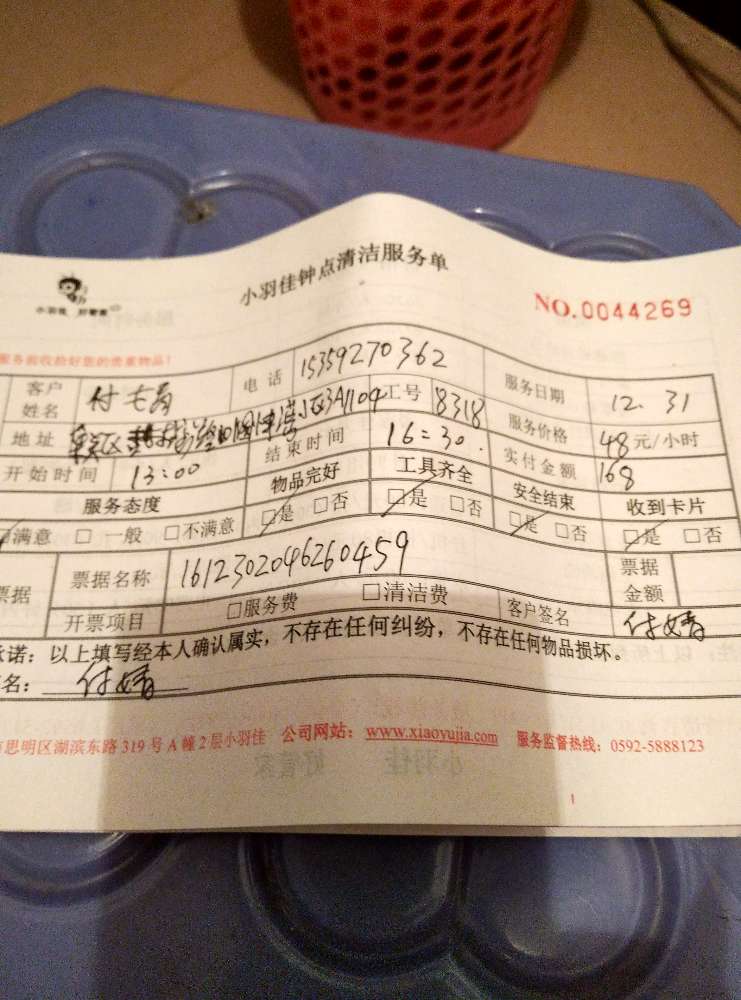 小羽佳钟点清洁服务单
小羽佳 好管家
NO.0044269
服务前收拾好您的贵重物品!
客户姓名 付 电话 15359270362 服务日期 12.31
地址 区 小区3A1104 工号 8318 服务价格 48元/小时
开始时间 13:00 结束时间 16:30. 实付金额 168
服务态度 物品完好 工具齐全 安全结束 收到卡片
满意 □ 一般 □不满意 □是 □否 □是 □否 □是 □否 □是 □否
票据 票据名称 1612302046260459 票据金额
开票项目 □服务费 □清洁费 客户签名 付婧
承诺:以上填写经本人确认属实,不存在任何纠纷,不存在任何物品损坏。
名: 付婧
思明区湖滨东路319号A幢2层小羽佳 公司网站:www.xiaoyujia.com 服务监督热线:0592-5888123
1